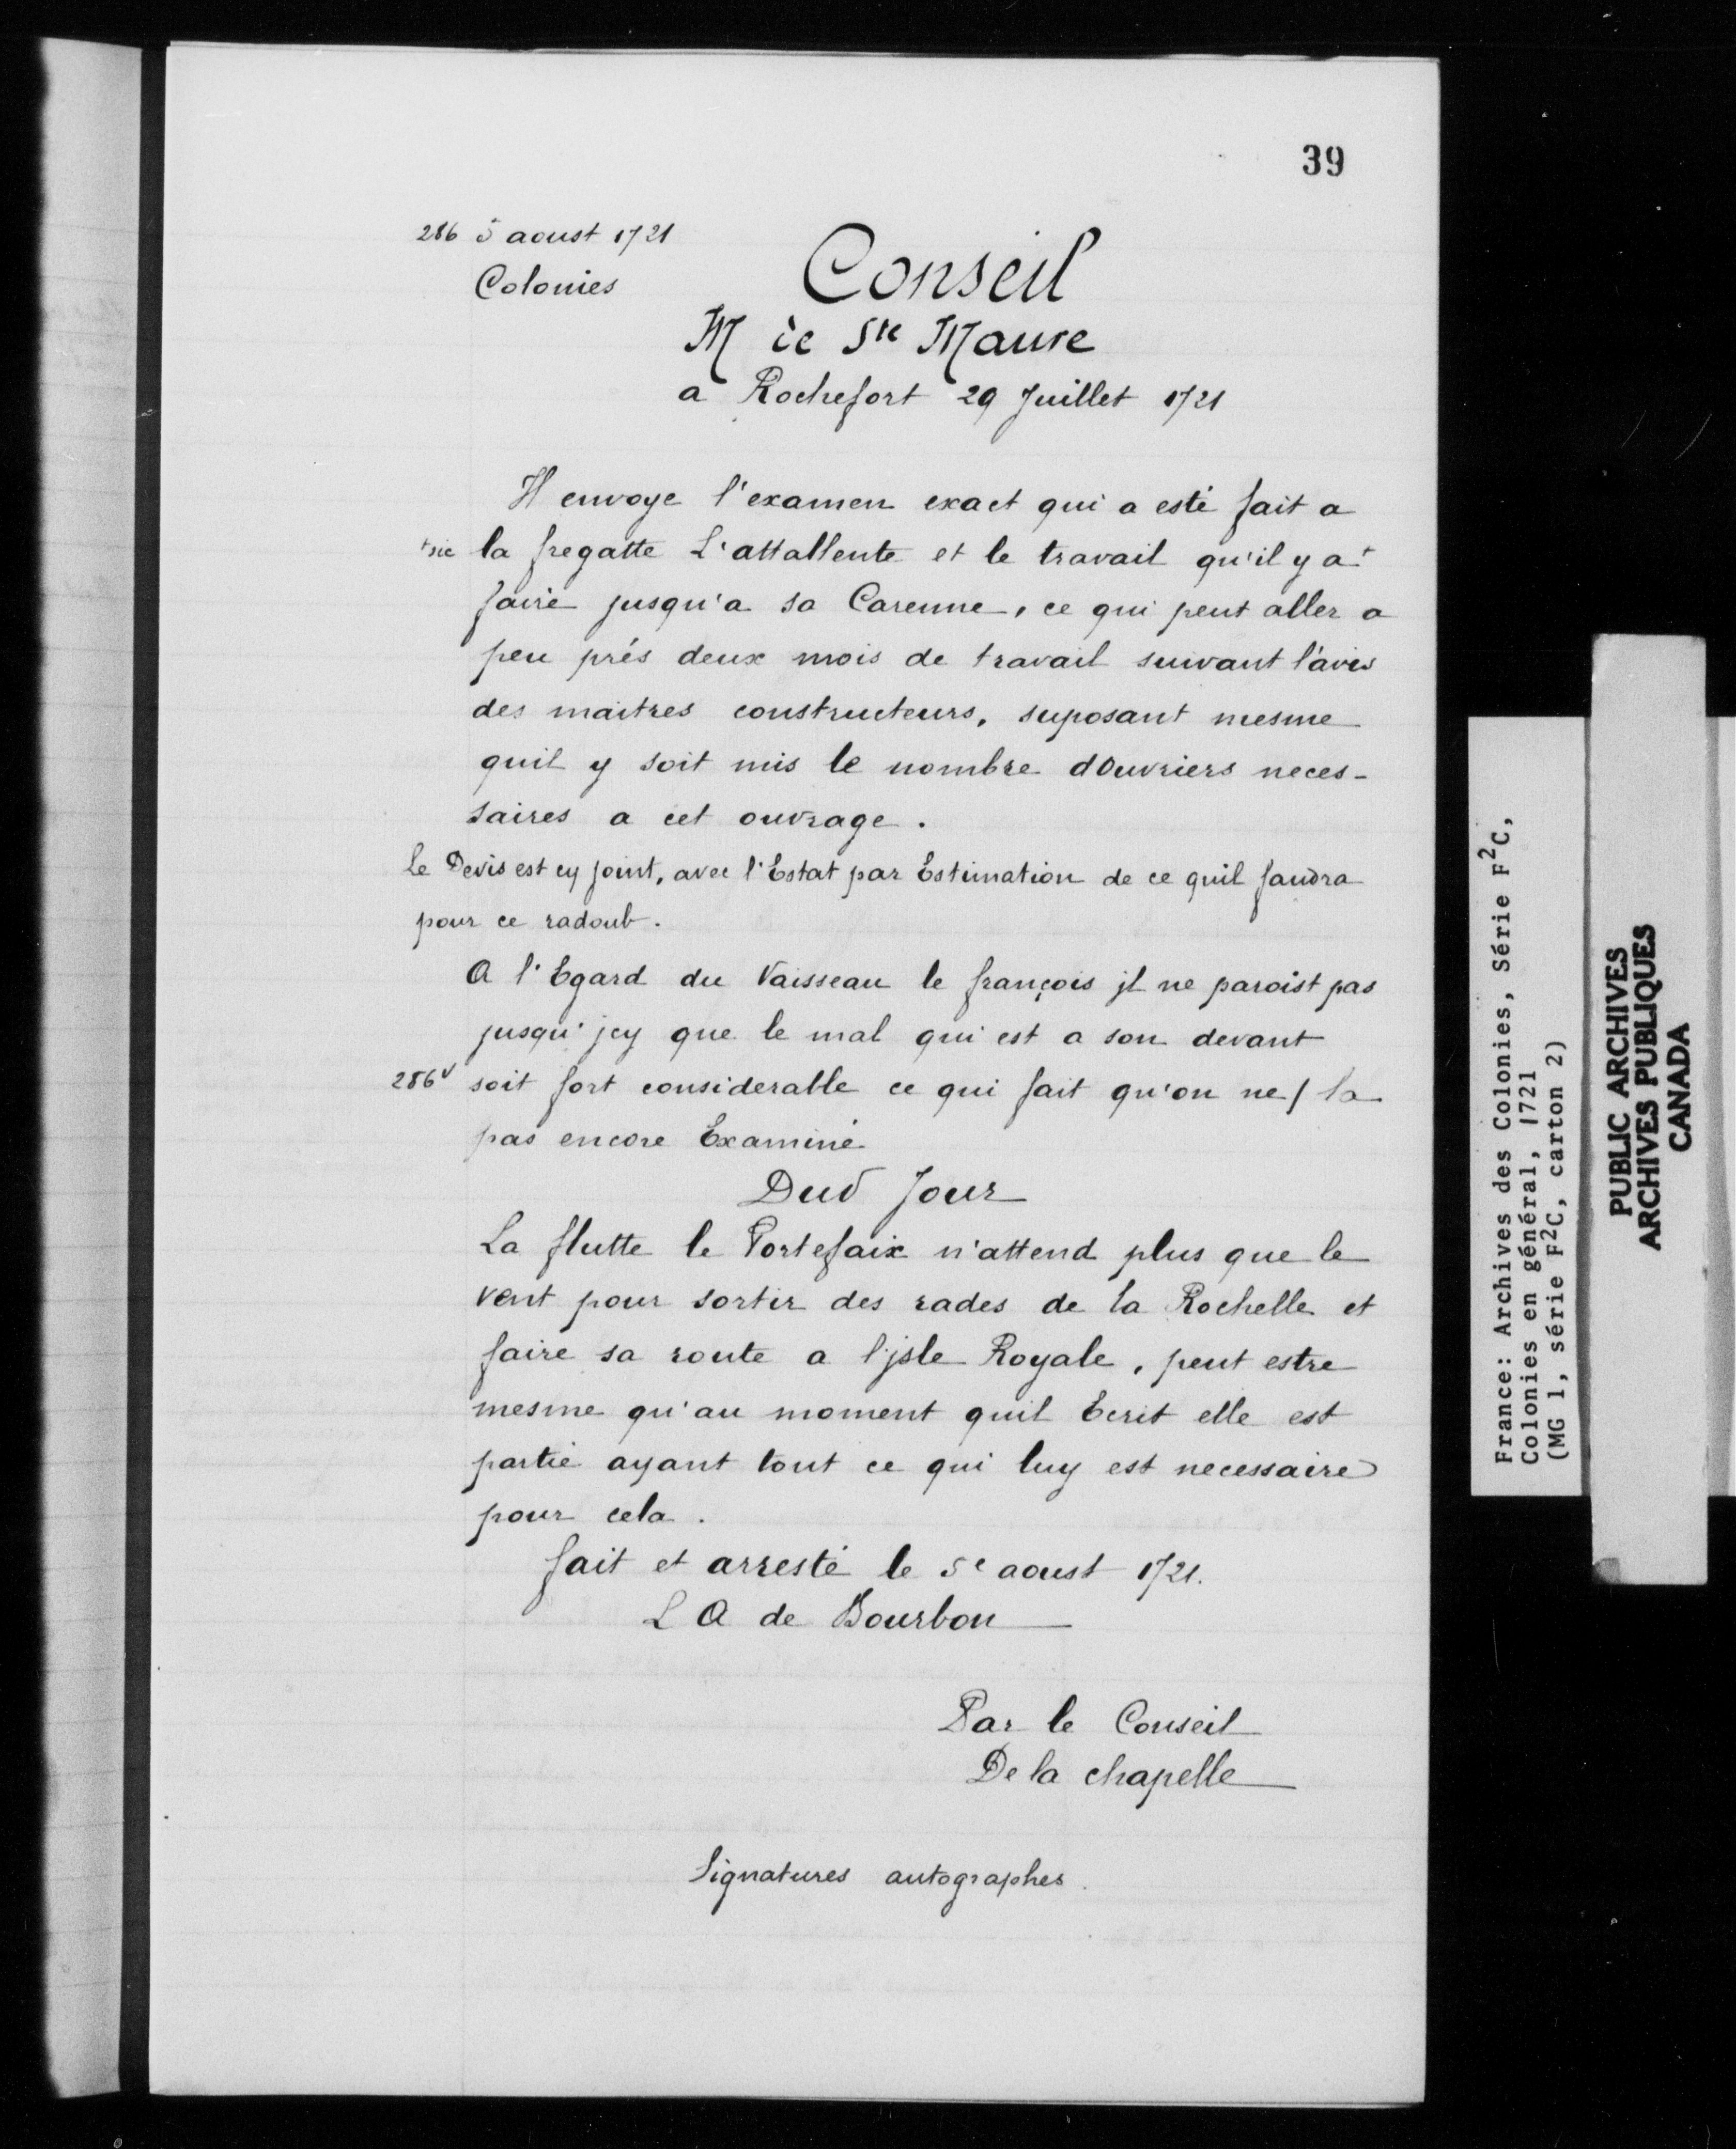 39
286 5 aoust 1721
Colonies
Conseil
M de Ste Maure
a Rochefort 29 Juillet 1721
Il envoye l'examen exact qui a esté fait a
+sic la fregatte L'attallente et le travail qu'il y a+
faire jusqu'a sa Carenne, ce qui peut aller a
peu prés deux mois de travail suivant l'avis
des maitres constructeurs, suposant mesme
quil y soit mis le nombre dOuvriers neces-
saires a cet ouvrage.
Le Devis est cy joint, avec l'Estat par Estimation de ce quil faudra
pour ce radoub.
A l'Egard du Vaisseau le françois jl ne paroist pas
jusqu'jcy que le mal qui est a son devant
286v soit fort considerable ce qui fait qu'on ne / la
pas encore Examiné
Dud Jour
La flutte le Portefaix n'attend plus que le
vent pour sortir des rades de la Rochelle et
faire sa route a l'jsle Royale, peut estre
mesme qu'au moment quil Ecrit elle est
partie ayant tout ce qui luy est necessaire
pour cela.
fait et arresté le 5e aoust 1721.
L A de Bourbon
Par le Conseil
De la chapelle
Signatures autographes.
France: Archives des Colonies, Série F2C,
Colonies en général, 1721
(MG 1, série F2C, carton 2)
PUBLIC ARCHIVES
ARCHIVES PUBLIQUES
CANADA